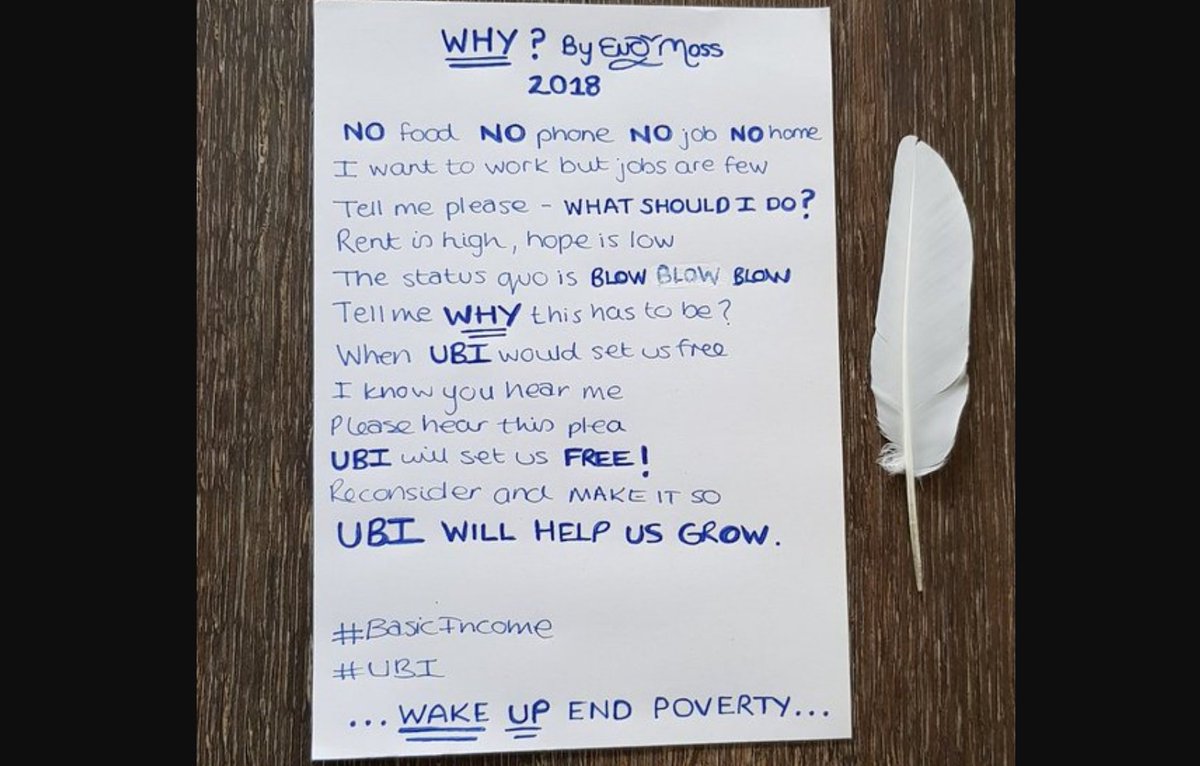 WHY? By Evy Moss
2018
NO food NO phone NO job NO home
I want to work but jobs are few
Tell me please - WHAT SHOULD I DO?
Rent is high, hope is low
The status quo is BLOW BLOW BLOW
Tell me WHY this has to be?
When UBI would set us free
I know you hear me
Please hear this plea
UBI will set us FREE!
Reconsider and MAKE IT SO
UBI WILL HELP US GROW.
#BasicIncome
#UBI
... WAKE UP END POVERTY...